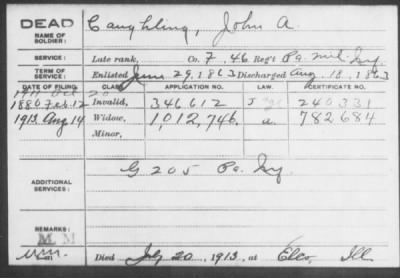 DEAD
NAME OF SOLDIER: Caughling, John A.
SERVICE: Late rank, Co. F, 46 Reg't Pa. Mil. Inf.
TERM OF SERVICE: Enlisted June 29, 1863 Discharged Aug. 18, 1863
DATE OF FILING. CLASS. APPLICATION NO. LAW. CERTIFICATE NO.
1880 Feb. 12 Invalid, 346612 J 240331
1913 Aug 14 Widow, 1,012,746 a. 782684
Minor,
ADDITIONAL SERVICES: G 205 Pa. Inf.
REMARKS:
M. M
Died July 20, 1913, at Elco, Ill.